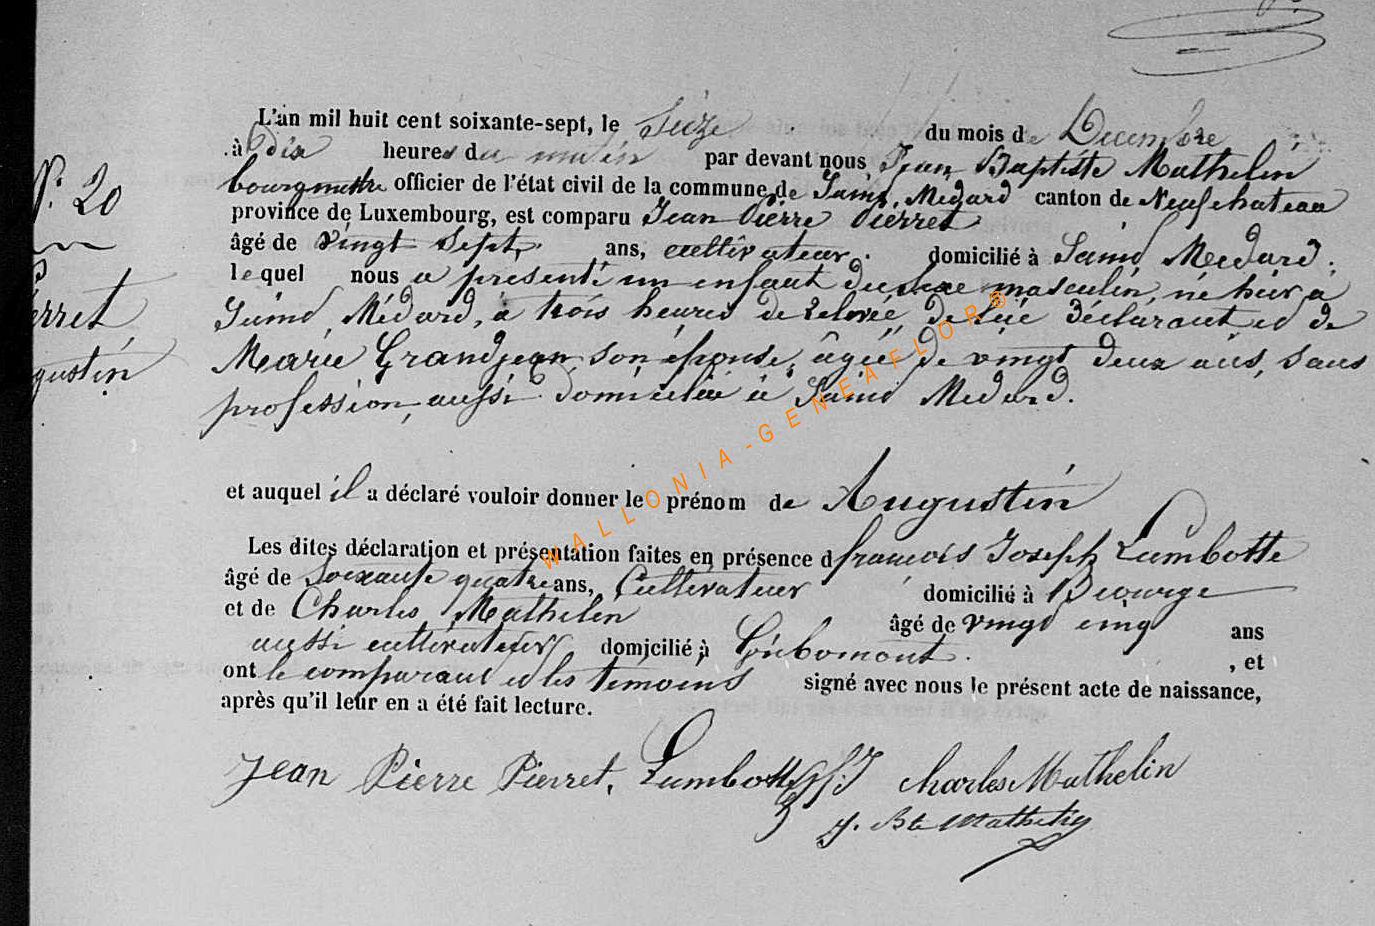 L'an mil huit cent soixante-sept, le Seize du mois de Décembre
à Dix heures du matin par devant nous Jean Baptiste Mathelin
bourgmestre officier de l'état civil de la commune de Saint Médard canton de Neufchateau
N° 20
province de Luxembourg, est comparu Jean Pierre Pierret
âgé de vingt sept ans, cultivateur domicilié à Saint Médard,
lequel nous a présenté un enfant du sexe masculin, né hier à
erret
Saint Médard, à trois heures de relevée, de lui déclarant et de
Marie Grandjean, son épouse, âgée de vingt deux ans, sans
gustin
profession, aussi domiciliée à Saint Médard.
et auquel il a déclaré vouloir donner le prénom de Augustin
Les dites déclaration et présentation faites en présence d françois Joseph Lambotte
âgé de Soixante quatre ans, Cultivateur domicilié à
et de Charles Mathelin âgé de vingt cinq ans
aussi cultivateur domicilié à , et
ont le comparant et les témoins signé avec nous le présent acte de naissance,
après qu'il leur en a été fait lecture.
Jean Pierre Pierret, Lambotte f. J charles Mathelin
J. Bte Mathelin
WALLONIA-GENEAFLORE